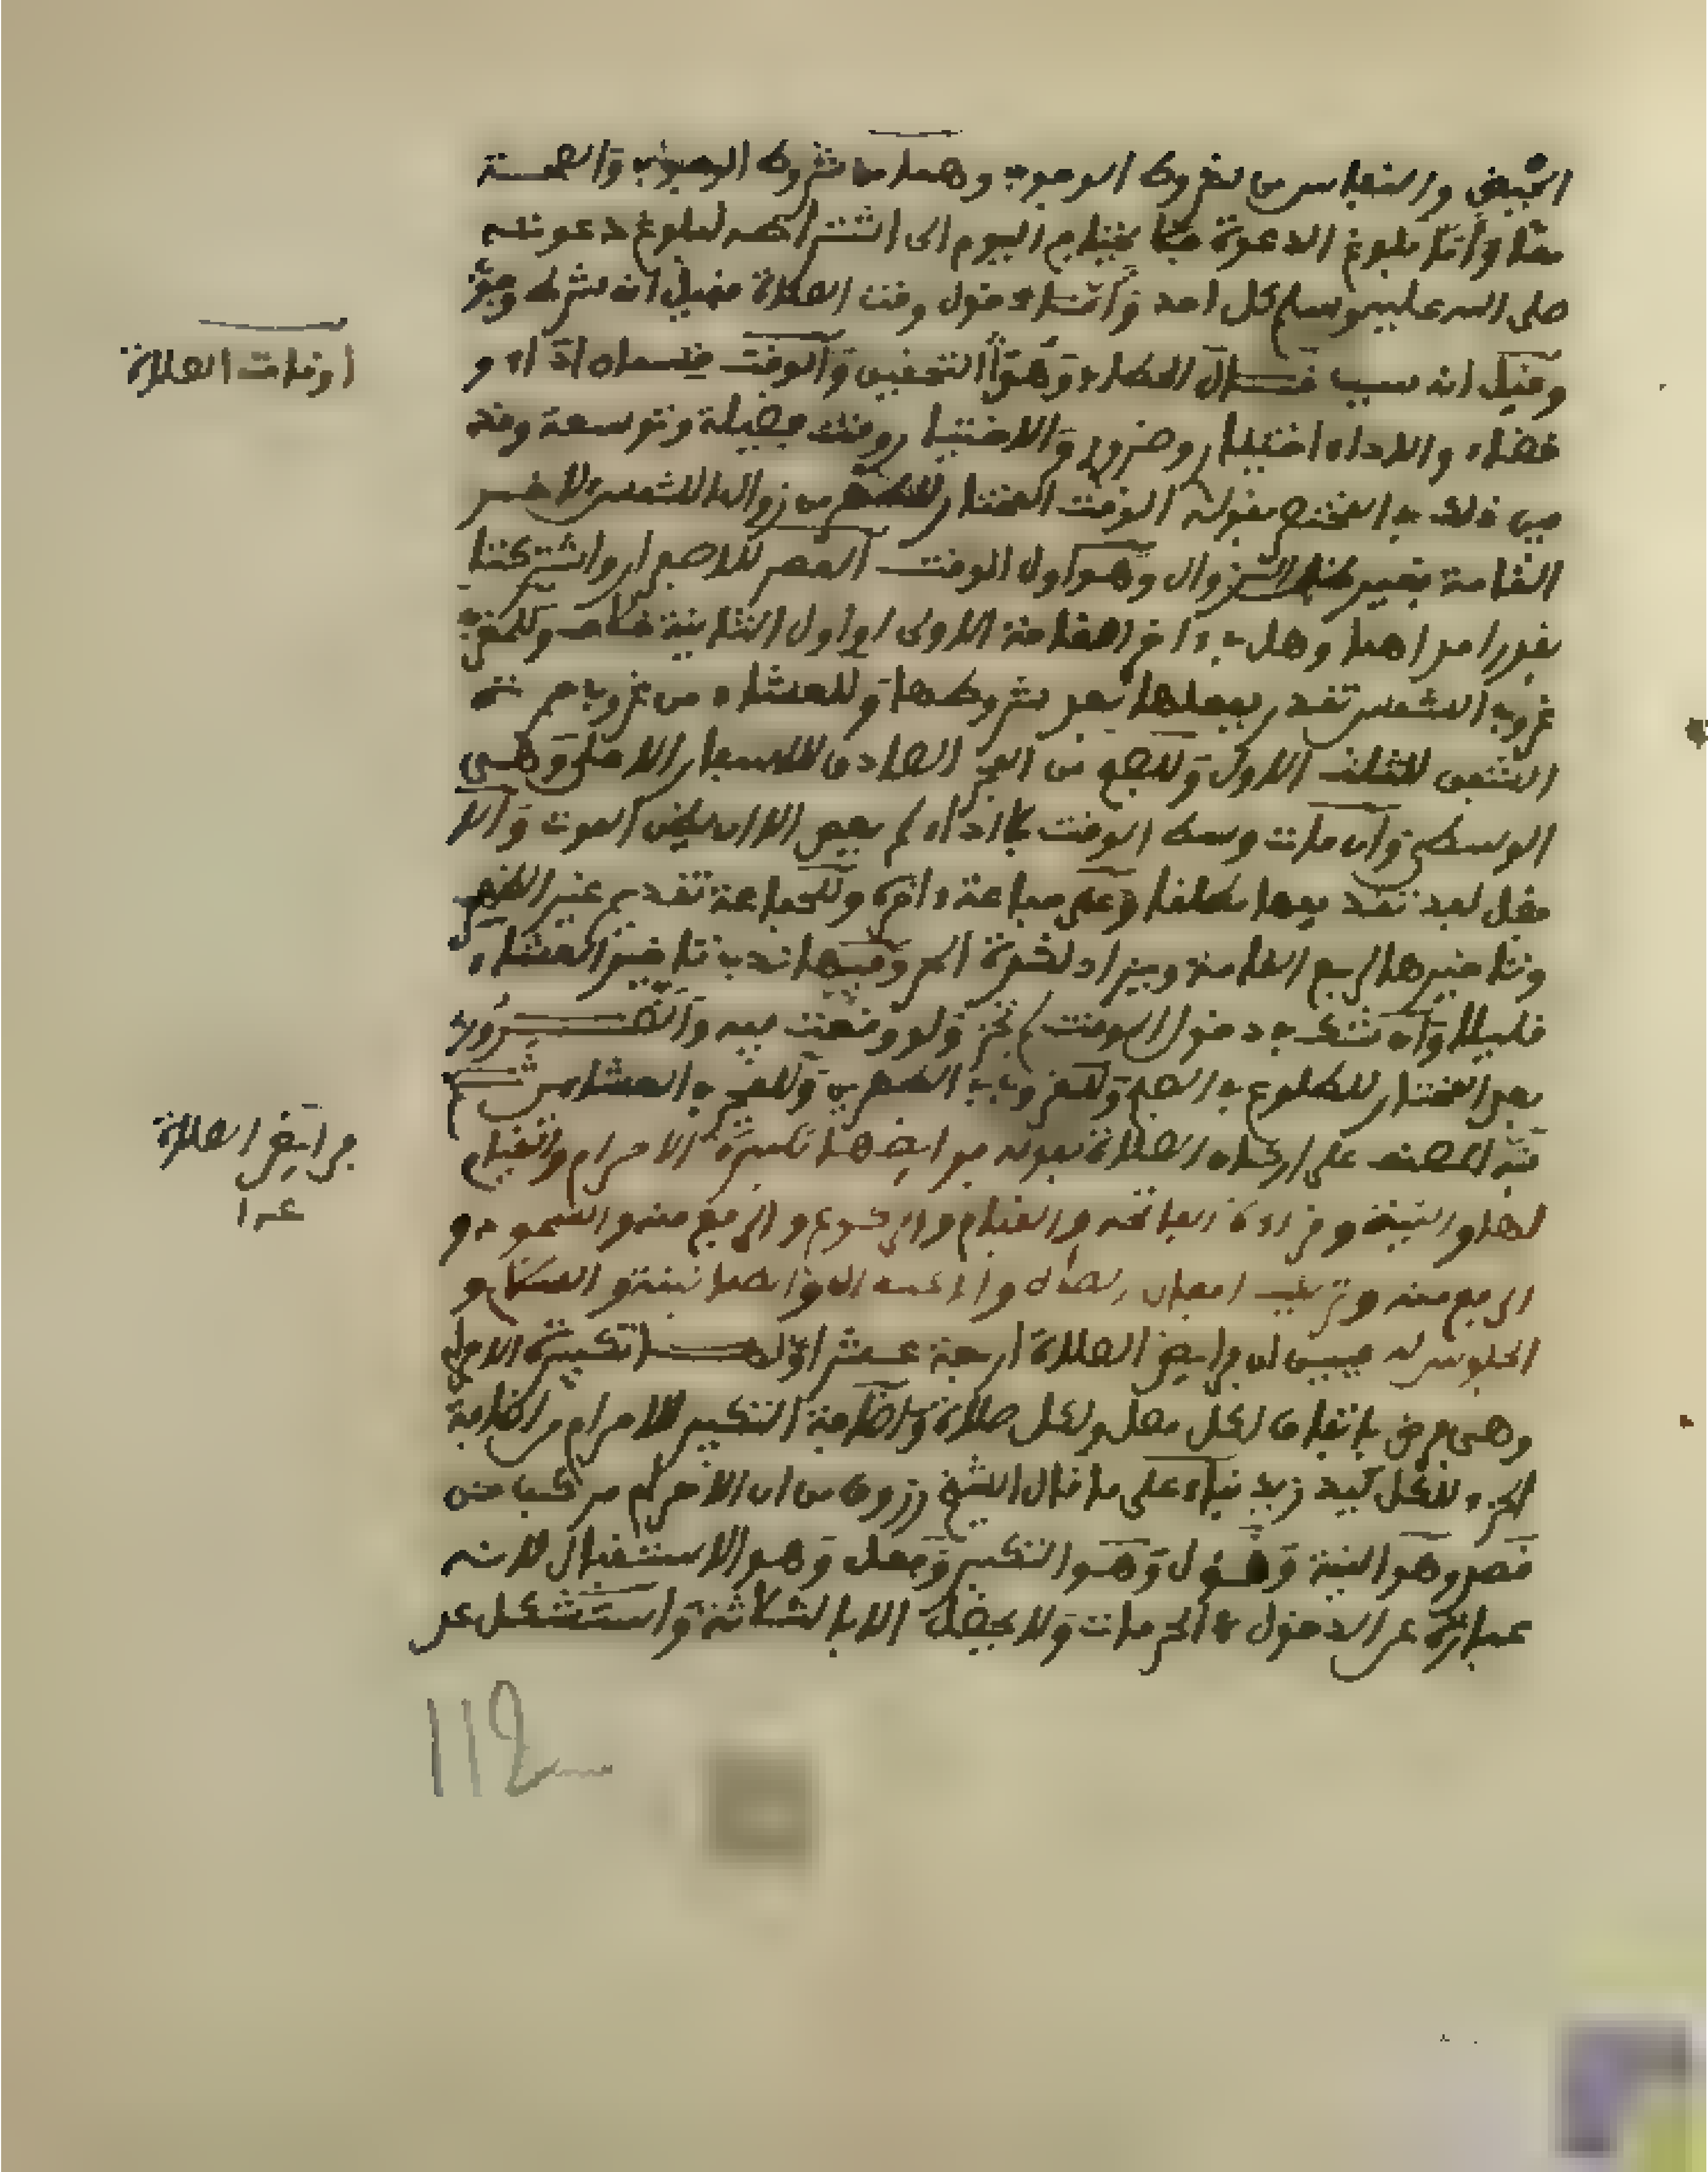 الحيض والنفاس من شروط الوجوب وهما من شروط الوجوب والصحة
معا وأما بلوغ الدعوة فلا يحتاج اليوم الى اشتراطه لبلوغ دعوته
صلى الله عليه وسلم كل احد وأما دخول وقت الصلاة فقيل انه شرط وجوب
وقيل انه سبب قال الحطاب وهو التحقيق والوقت قسمان اداء و
قضاء والاداء اختيار وضروري والاختيار وقت فضيلة وتوسعة وقد
بين ذلك في المختصر بقوله الوقت المختار للظهر من زوال الشمس لاخر
القامة بغير ظل الزوال وهو اول الوقت العصر للاصفرار واشتركتا
بقدر احداهما وهل في آخر القامة الاولى او اول الثانية خلاف وللمغرب
غروب الشمس تقدر بفعلها بعد شروطها وللعشاء من غروب حمرة
الشفق للثلث الاول وللصبح من الفجر الصادق للاسفار الاعلى وهي
الوسطى وان مات وسط الوقت بلا اداء لم يعص الا ان يظن الموت والا
فضل لفذ تقديمها مطلقا وعلى جماعة آخره وللجماعة تقديم غير الظهر
وتاخيرها لربع القامة ويزاد لشدة الحر وفيها ندب تاخير العشاء
قليلا وان شك في دخول الوقت لم تجز ولو وقعت فيه والضروري
بعد المختار للطلوع في الصبح وللغروب في الظهرين وللفجر في العشاءين ثم
نبه المصنف على اركان الصلاة بقوله فرائضها تكبيرة الاحرام والقيام
لها والنية وقراءة الفاتحة والقيام والركوع والرفع منه والسجود و
الرفع منه وترتيب افعال الصلاة والاعتدال والطمانينة والسلام و
الجلوس له فبين ان فرايض الصلاة اربعة عشر اولها تكبيرة الاحرام
وهي فرض باتفاق لكل فعل ولكل صلاة واضافة التكبير للاحرام من اضافة
الجزء للكل كيد زيد بناء على ما قال الشيخ زروق من ان الاحرام مركب من
قصد وهو النية وقول وهو التكبير وفعل وهو الاستقبال لانه
عبارة عن الدخول في الحرمات ولا يحصل الا بالثلاثة واستشكل عد
اوقات الصلاة
فرايض الصلاة
عدا
112